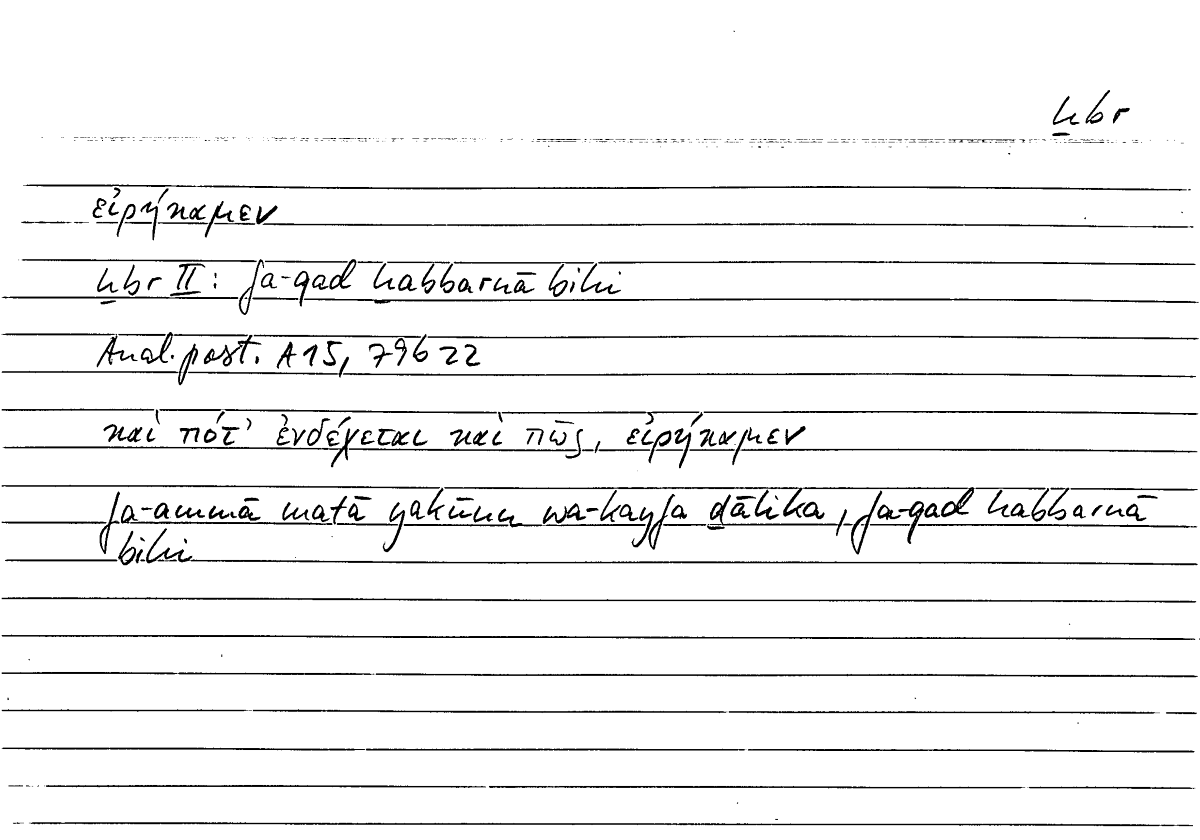 ẖbr
εἰρήκαμεν
ẖbr II: fa-qad ẖabbarnā bihi
Anal. post. A 15, 79b22
καὶ πότ' ἐνδέχεται καὶ πῶς, εἰρήκαμεν
fa-ammā matā yakūnu wa-kayfa ḏālika, fa-qad habbarnā
bihi